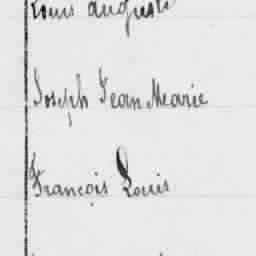 Louis auguste
Joseph Jean Marie
François Louis